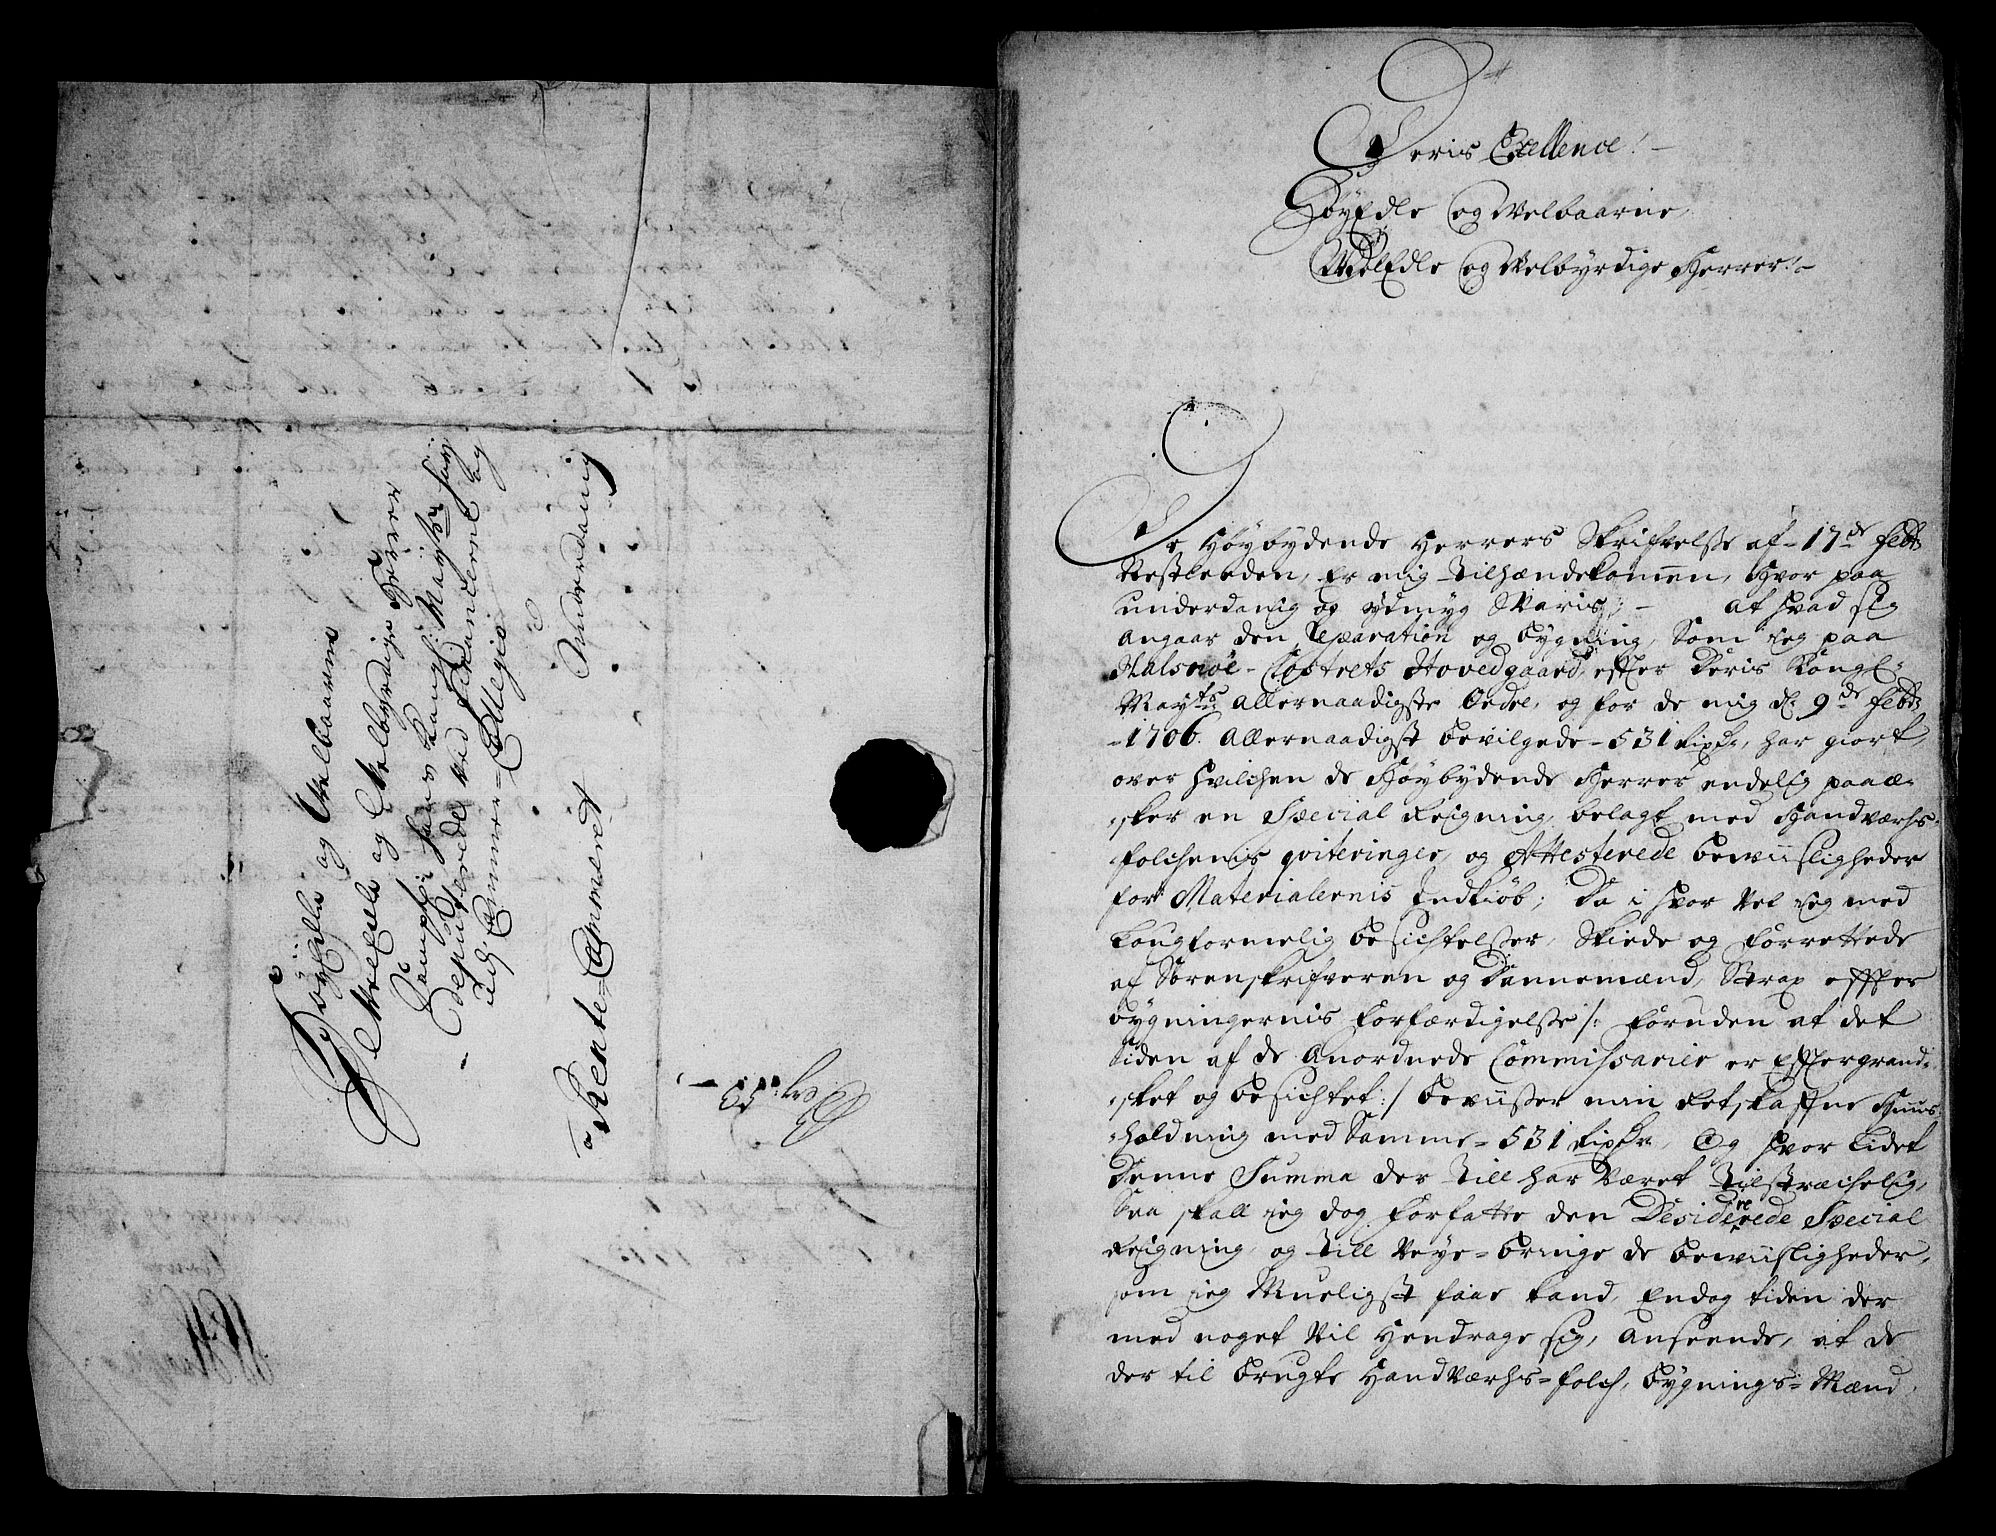 HöyEdle og Velbaarne
VelEdle og Velbyrdige Herrer
Samptl: Hans Kongl: Mayts:
Deputerede ved Financerne og
udj Cammer-Collegio
Underdanig
à Rente-Cammeret
Deris Excellence!
HöyEdle og Welbaarne,
WelEdle og Welbyrdige Herrer!
De Høybydende Herrers Skrifvelse af 17de Febr:
Nestleeden, Er mig tilhændekommen, Hvor paa
underdanig og ydmyg Svaris; - At hvad sig
angaar den Reparation og bygning, Som ieg paa
Halsnöe-Closters Hovedgaard, effter Deris Kongl:
Mayts Allernaadigste Ordre, og for de mig d: 9de Febr:
1706. Allernaadigst bevilgede - 531 Rixdr, har giort,
over hvilchen de Høybydende Herrer endelig paaæ-
sker en Special Reigning, belagt med Handværchs-
folchenis qviteringer, og Attesterede bewiisligheder
for Materialernis Indkiöb; Da i hvor vel ieg med
Laugformelig besichtelser, Skiede og forrettede
af Sorenskrifveren og Dannemænd, Strax effter
bygningernis forfærdigelse /: foruden at det
siden af de Anordnede Commissarier er Efftergrand-
sket og besichtet :/ beviiser min Retskafne Huus-
holdning med Samme - 531 Rixdr, Og hvor lidet
Denne Summa der till har været tilstræchelig,
Saa skall ieg dog forfatte den Desidererede Special
Reigning, og till veye-bringe de bewiisligheder,
som ieg Mueligst faae kand, Endog tiden der
med noget vil Hendrage sig, Anseende, at de
der til brugte Handværchs-folch, bygnings-Mænd,